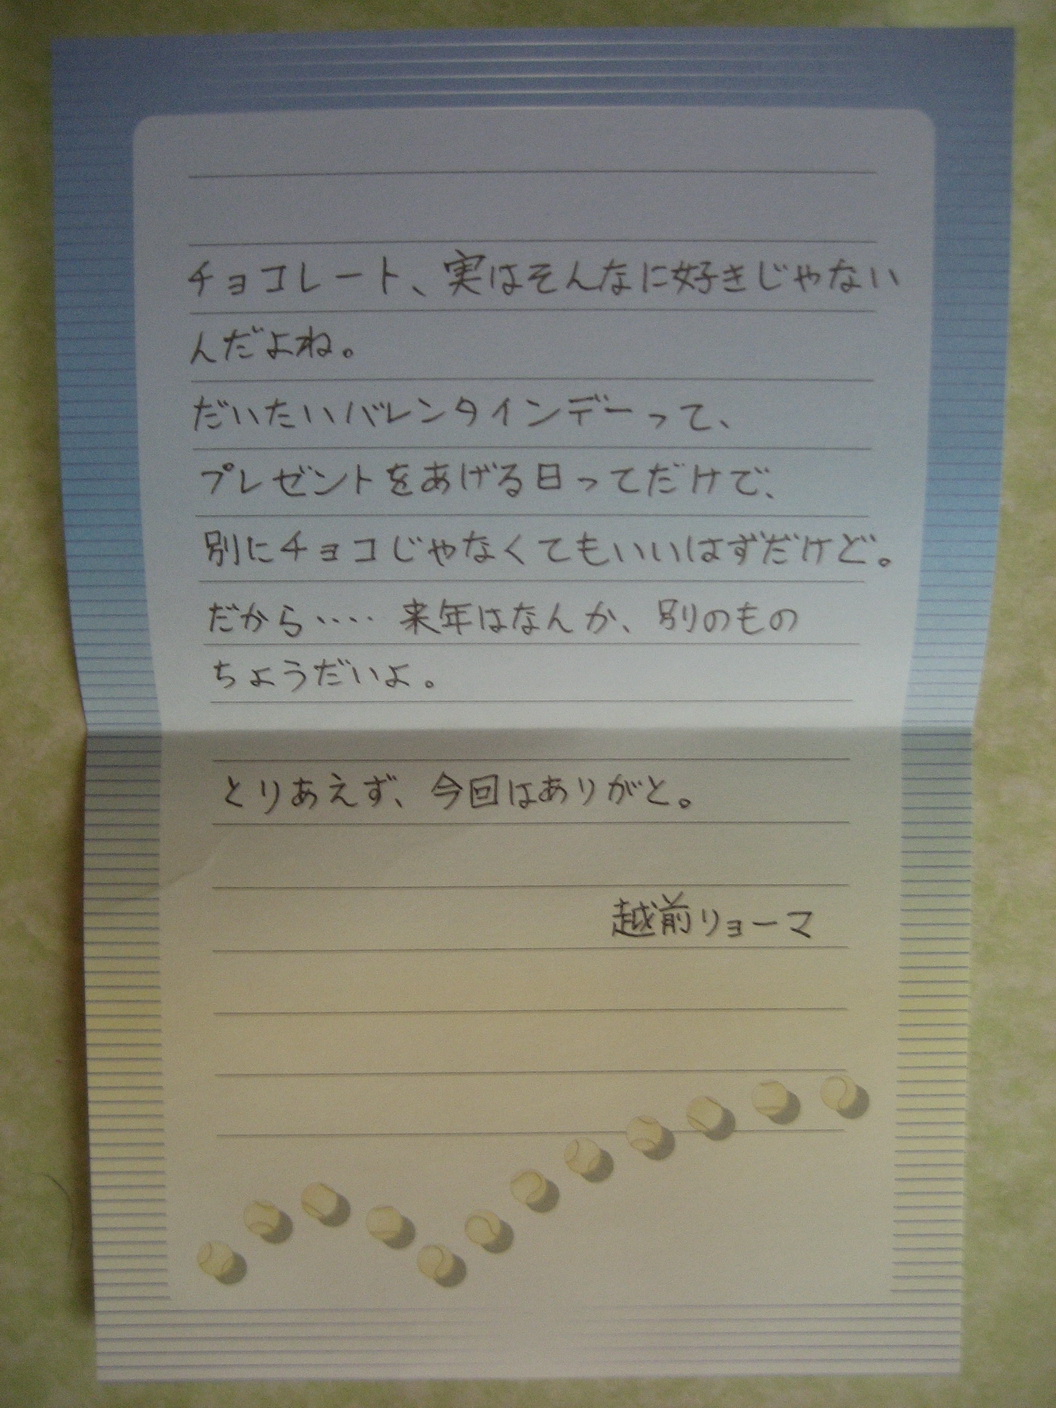 チョコレート、実はそんなに好きじゃない
んだよね。
だいたいバレンタインデーって、
プレゼントをあげる日ってだけで、
別にチョコじゃなくてもいいはずだけど。
だから‥‥ 来年はなんか、別のもの
ちょうだいよ。
とりあえず、今回はありがと。
越前リョーマ